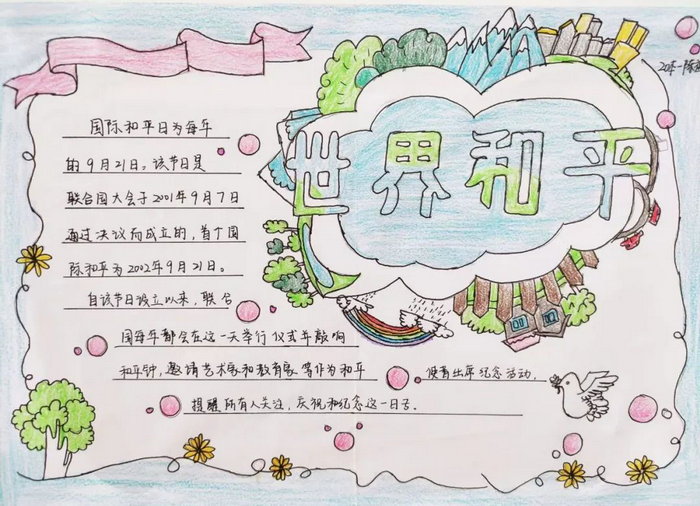 世界和平
国际和平日为每年
的9月21日。该节日是
联合国大会于2001年9月7日
通过决议而成立的，首个国
际和平为2002年9月21日。
自该节日设立以来，联合
国每年都会在这一天举行仪式并敲响
和平钟，邀请艺术家和教育家等作为和平
使者出席纪念活动，
提醒所有人关注，庆祝和纪念这一日子。